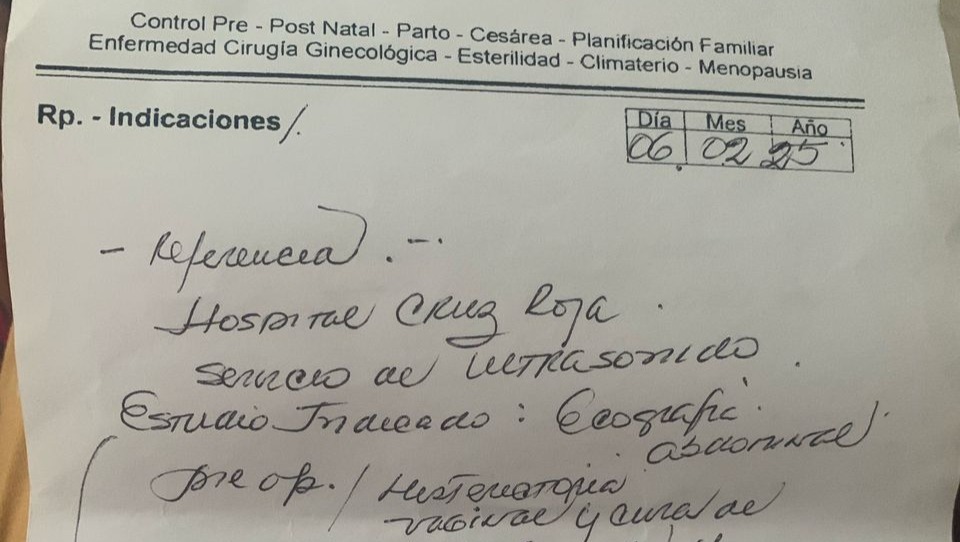 Control Pre - Post Natal - Parto - Cesárea - Planificación Familiar
Enfermedad Cirugía Ginecológica - Esterilidad - Climaterio - Menopausia
Rp. - Indicaciones /.
Día Mes Año
06 02 25
- Referencia . -.
Hospital Cruz Roja .
Servicio de Ultrasonido .
Estudio Indicado : Ecografia
abdominal .
pre op. / Histerectomia
vaginal y cura de